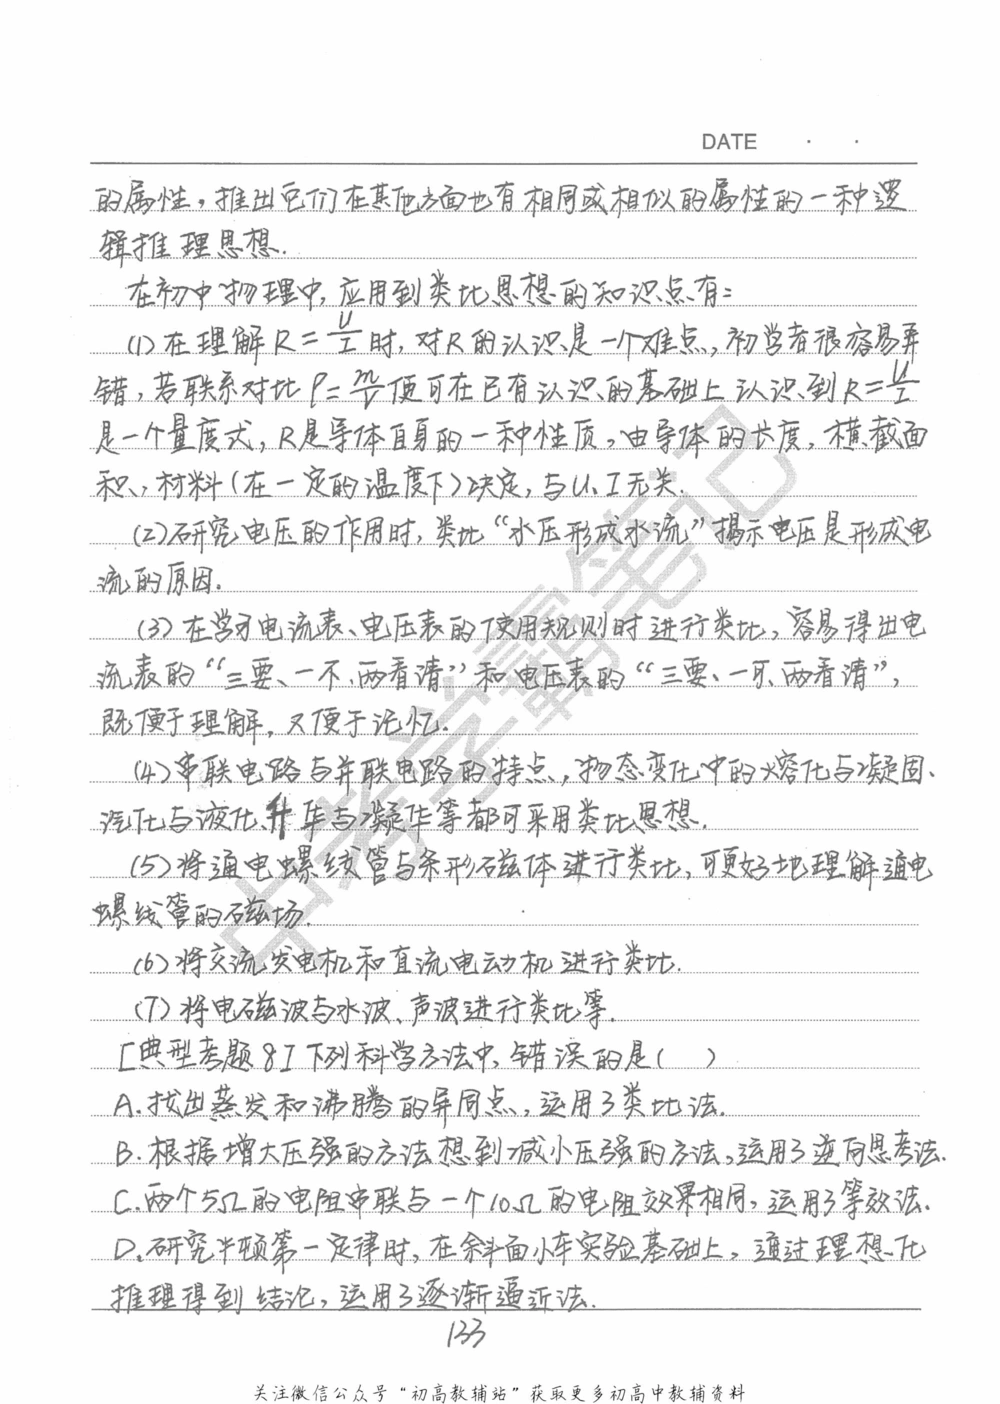 DATE · ·
的属性，推出它们在其他方面也有相同或相似的属性的一种逻
辑推理思想.
在初中物理中，应用到类比思想的知识点有：
(1)在理解R=U/I时，对R的认识是一个难点，初学者很容易弄
错，若联系对比ρ=m/V便可在已有认识的基础上认识到R=U/I
是一个量度式，R是导体自身的一种性质，由导体的长度，横截面
积，材料(在一定的温度下)决定，与U、I无关.
(2)研究电压的作用时，类比“水压形成水流”揭示电压是形成电
流的原因.
(3)在学习电流表、电压表的使用规则时进行类比，容易得出电
流表的“三要、一不、两看清”和电压表的“三要、一不、两看清”，
既便于理解，又便于记忆.
(4)串联电路与并联电路的特点，物态变化中的熔化与凝固、
汽化与液化、升华与凝华等都可采用类比思想.
(5)将通电螺线管与条形磁体进行类比，可更好地理解通电
螺线管的磁场.
(6)将交流发电机和直流电动机进行类比.
(7)将电磁波与水波、声波进行类比等.
[典型考题8]下列科学方法中，错误的是( )
A.找出蒸发和沸腾的异同点，运用了类比法.
B.根据增大压强的方法想到减小压强的方法，运用了逆向思考法.
C.两个5Ω的电阻串联与一个10Ω的电阻效果相同，运用了等效法.
D.研究牛顿第一定律时，在斜面小车实验基础上，通过理想化
推理得到结论，运用了逐渐逼近法.
133
关注微信公众号“初高教辅站”获取更多初高中教辅资料
中考学霸笔记